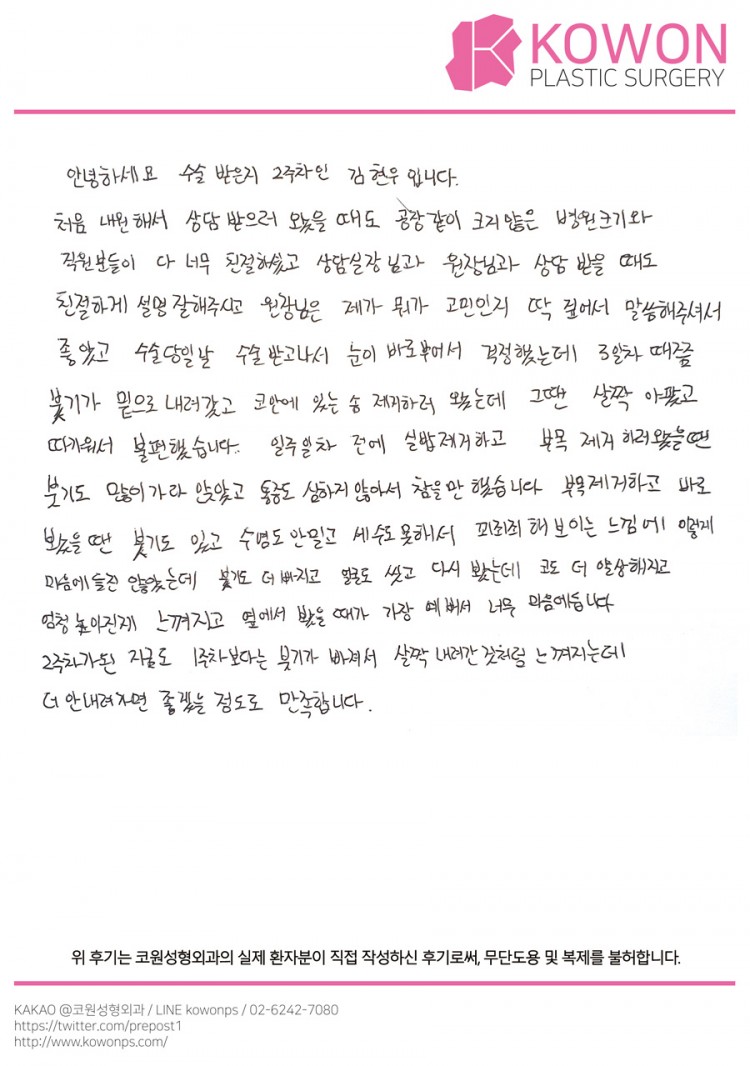 KOWON
PLASTIC SURGERY
안녕하세요 수술 받은지 2주차인 김현우 입니다.
처음 내원해서 상담 받으러 왔을 때도 공장같이 크지않은 병원크기와
직원분들이 다 너무 친절하셨고 상담실장님과 원장님과 상담 받을 때도
친절하게 설명 잘해주시고 원장님은 제가 뭐가 고민인지 딱 짚어서 말씀해주셔서
좋았고 수술당일날 수술받고나서 눈이 바로부어서 걱정했는데 3일차 때쯤
붓기가 밑으로 내려갔고 코안에 있는 솜 제거하러 왔는데 그땐 살짝 아팠고
따가워서 불편했습니다. 일주일차 전에 실밥제거하고 부목 제거 하러왔을땐
붓기도 많이가라 앉았고 통증도 심하지 않아서 참을만 했습니다 부목제거하고 바로
봤을 땐 붓기도 있고 수염도 안밀고 세수도못해서 꾀죄죄 해보이는 느낌에 이렇게
마음에들진 않았는데 붓기도 더 빠지고 얼굴도 씻고 다시 봤는데 코도 더 얄상해지고
엄청 높아진게 느껴지고 옆에서 봤을 때가 가장 예뻐서 너무 마음에듭니다
2주차가된 지금도 1주차보다는 붓기가 빠져서 살짝 내려간 것처럼 느껴지는데
더 안내려가면 좋겠을 정도로 만족합니다.
위 후기는 코원성형외과의 실제 환자분이 직접 작성하신 후기로써, 무단도용 및 복제를 불허합니다.
KAKAO @코원성형외과 / LINE kowonps / 02-6242-7080
https://twitter.com/prepost1
http://www.kowonps.com/